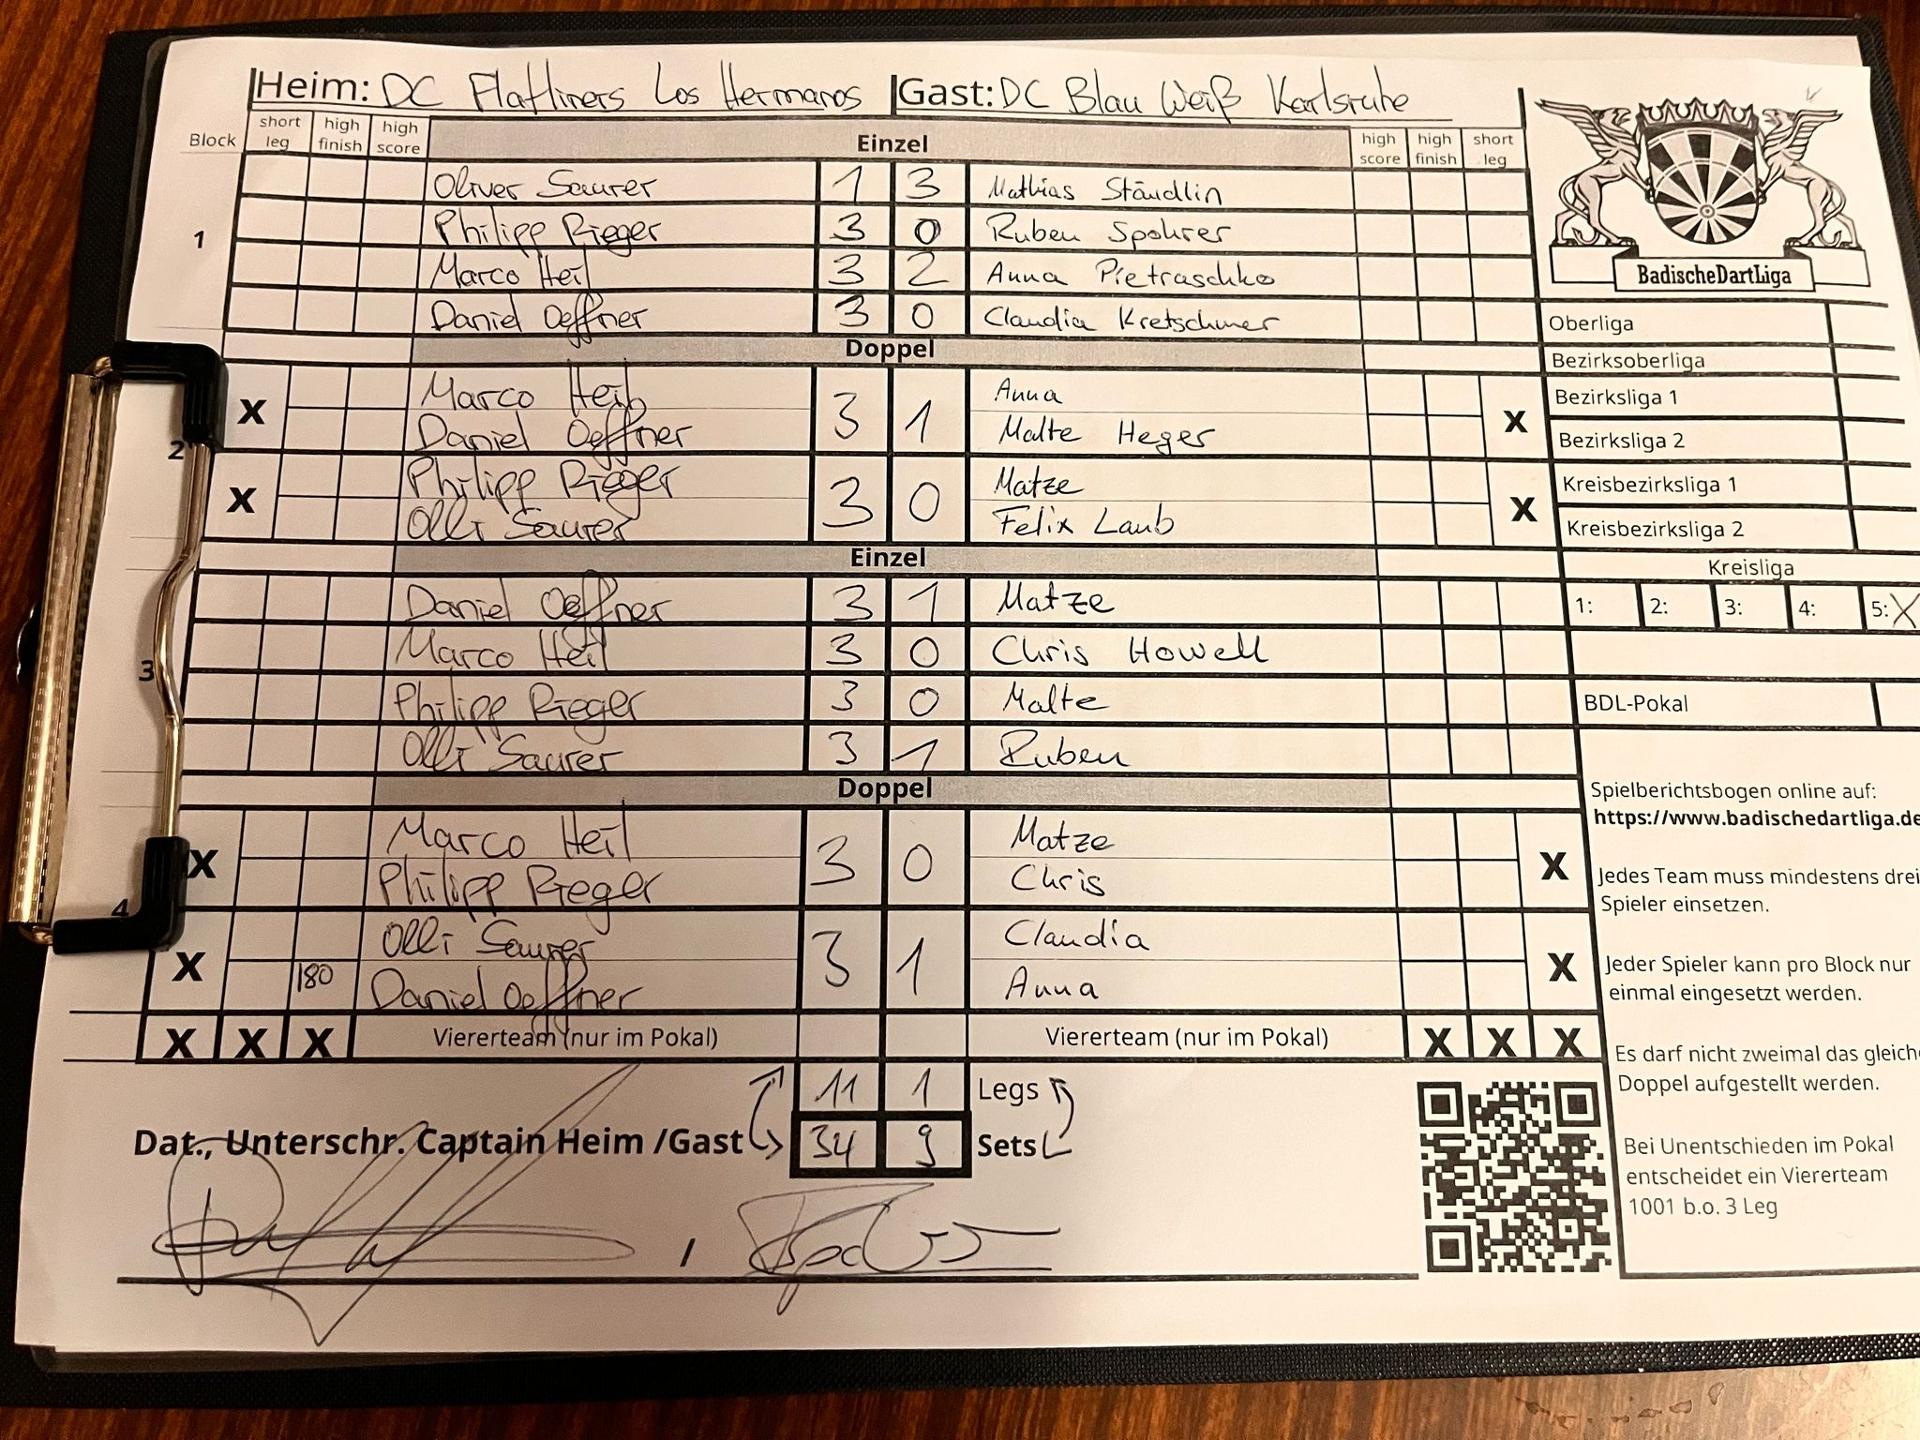 Heim: DC Flatliners Los Hermanos Gast: DC Blau Weiß Karlsruhe
Block short leg high finish high score Einzel high score high finish short leg
1
Oliver Saurer 1 3 Mathias Ständlin
Philipp Rieger 3 0 Ruben Spohrer
Marco Heil 3 2 Anna Pietraschko
Daniel Oeffner 3 0 Claudia Kretschmer
Doppel
2
X Marco Heil 3 1 Anna X
Daniel Oeffner Malte Heger
X Philipp Rieger 3 0 Matze X
Olli Saurer Felix Laub
Einzel
3
Daniel Oeffner 3 1 Matze
Marco Heil 3 0 Chris Howell
Philipp Rieger 3 0 Malte
Olli Saurer 3 1 Ruben
Doppel
4
X Marco Heil 3 0 Matze X
Philipp Rieger Chris
X Olli Saurer 3 1 Claudia X
180 Daniel Oeffner Anna
X X X Viererteam (nur im Pokal) Viererteam (nur im Pokal) X X X
11 1 Legs
Dat., Unterschr. Captain Heim /Gast 34 9 Sets
/
BadischeDartLiga
Oberliga
Bezirksoberliga
Bezirksliga 1
Bezirksliga 2
Kreisbezirksliga 1
Kreisbezirksliga 2
Kreisliga
1: 2: 3: 4: 5: X
BDL-Pokal
Spielberichtsbogen online auf:
https://www.badischedartliga.de
Jedes Team muss mindestens drei
Spieler einsetzen.
Jeder Spieler kann pro Block nur
einmal eingesetzt werden.
Es darf nicht zweimal das gleiche
Doppel aufgestellt werden.
Bei Unentschieden im Pokal
entscheidet ein Viererteam
1001 b.o. 3 Leg